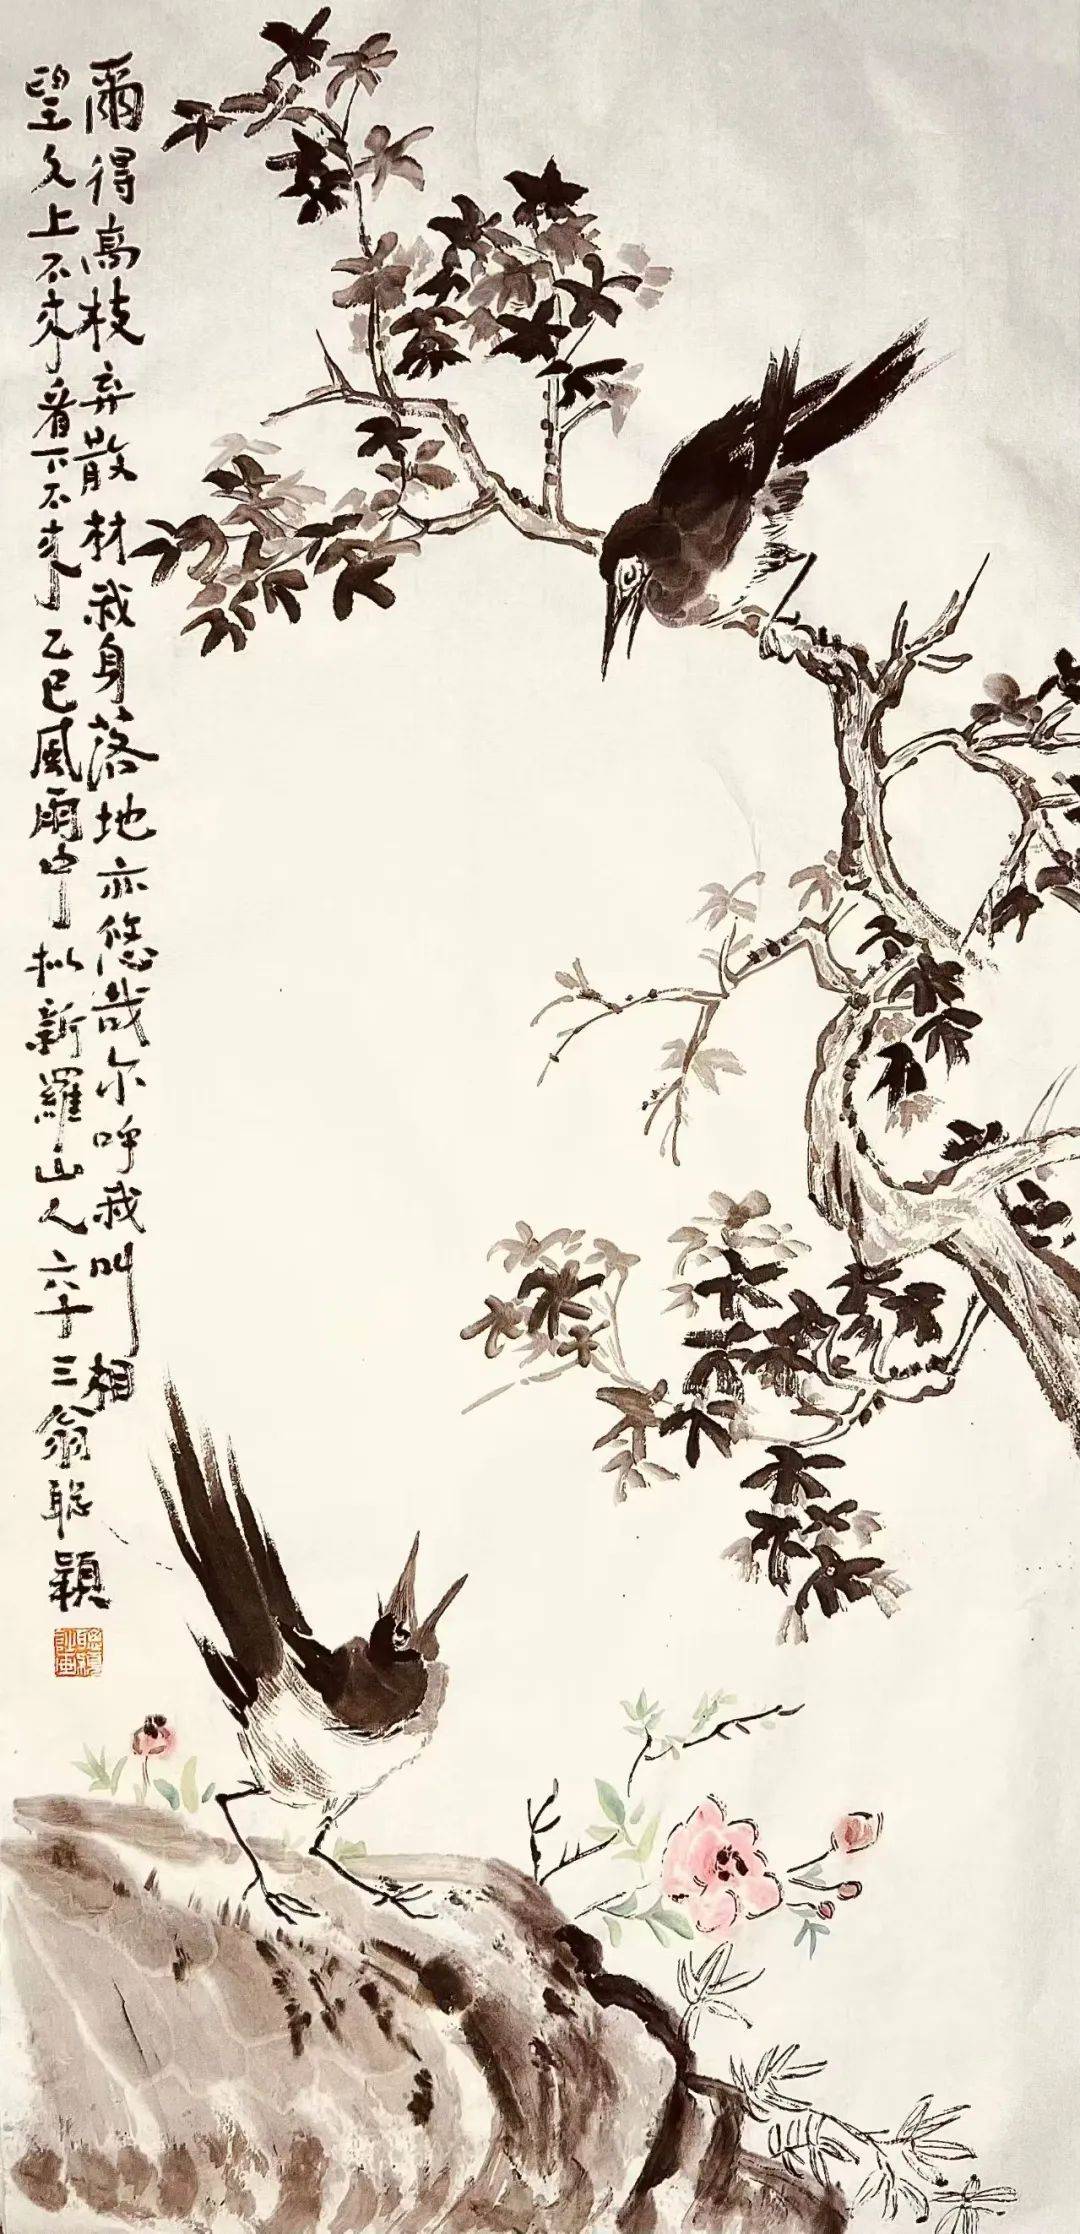 爾得高枝弃散材我身落地亦悠哉尔呼我叫相
望久上不來看下不來乙巳風雨中拟新羅山人六十三翁聪颖